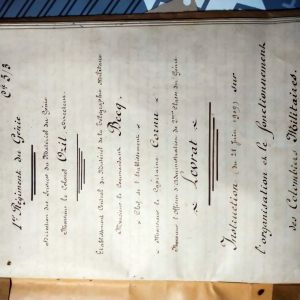 Cie 5/3
1er Régiment du Génie
Direction des Services du Matériel du Génie
Monsieur le Colonel Oeil Directeur
Etablissement Central du Matériel de la Télégraphie Militaire
Monsieur le Commandant Decq.
Chef de l'Etablissement
Monsieur le Capitaine Cornu
Monsieur l'Officier d'Administration de 2ème Classe du Génie
Lovrat
Instruction du 21 Juin 1909 sur
l'organisation et le fonctionnement
des Colombiers Militaires